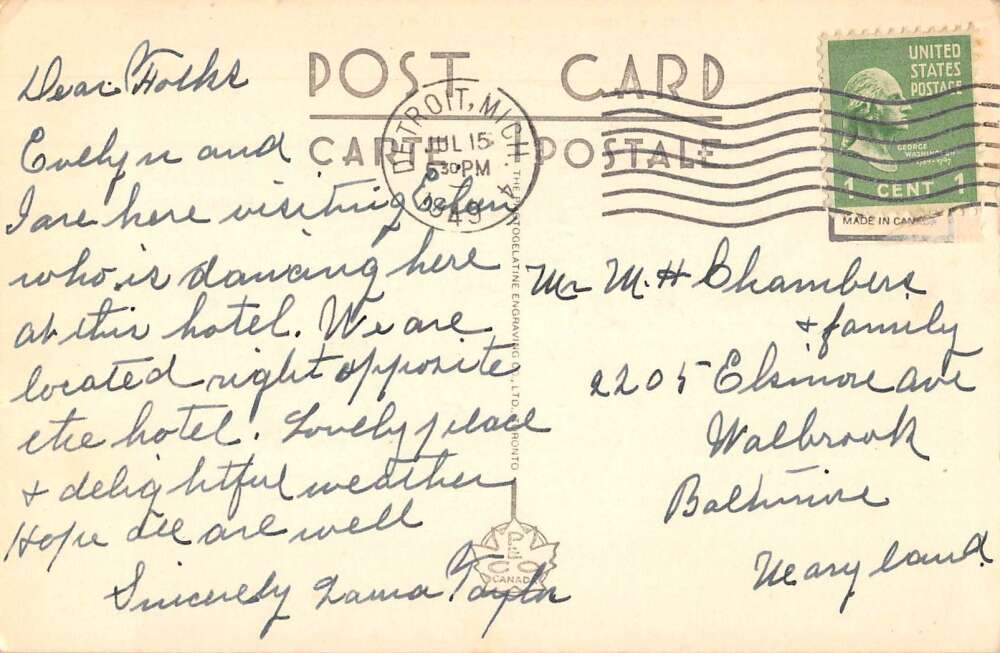 POST CARD
CARTE POSTALE
DETROIT, MICH. 4
JUL 15
5 30 PM
1949
UNITED
STATES
POSTAGE
GEORGE
WASHINGTON
1 CENT 1
MADE IN CANADA
Dear Folks
Evelyn and
I are here visiting
who is dancing here
at this hotel. We are
located right opposite
the hotel. Lovely place
& delightful weather
Hope all are well
Sincerely Taylor
THE PHOTOGELATINE ENGRAVING CO., LTD. TORONTO
CANADA
Mr M. H Chambers
& family
2205 Elsinore Ave
Walbrook
Baltimore
Maryland.